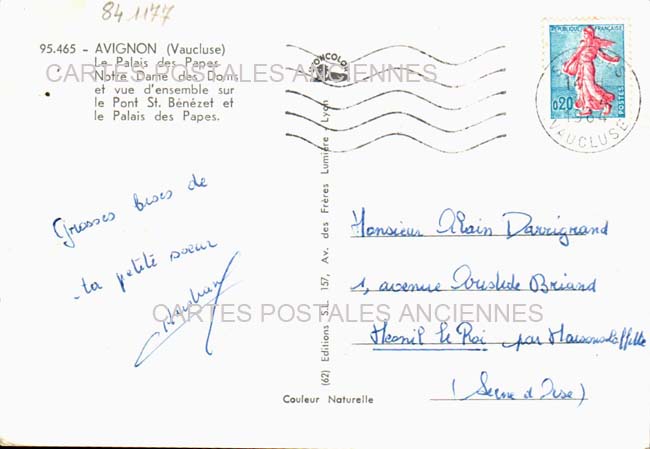 84 1177
95.465 - AVIGNON (Vaucluse)
Le Palais des Papes
Notre Dame des Doms
et vue d'ensemble sur
le Pont St. Bénézet et
le Palais des Papes.
CARTES POSTALES ANCIENNES
REPUBLIQUE FRANÇAISE
0,20
POSTES
14
1964
VAUCLUSE
Grosses bises de
ta petite soeur
(62) Editions S.L. 157, Av. des Frères Lumière - Lyon
Monsieur Alain Darrigrand
1, avenue Aristide Briand
CARTES POSTALES ANCIENNES
Mesnil le Roi par Maisons Laffitte
(Seine et Oise)
Couleur Naturelle